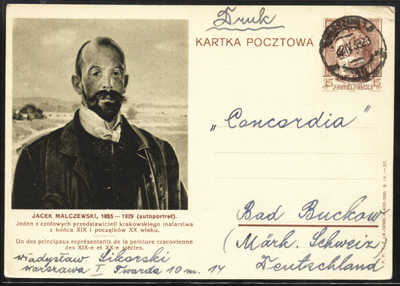 Druk
KARTKA POCZTOWA
"Concordia"
JACEK MALCZEWSKI, 1855—1929 (autoportret).
Jeden z czołowych przedstawicieli krakowskiego malarstwa
z końca XIX i początków XX wieku.
Un des principaux représentants de la peinture cracovienne
des XIX-e et XX-e siècles.
Władysław Sikorski
Warszawa I Twarda 10 m. 14
Bad Buckow
(Märk. Schweiz)
Deutschland